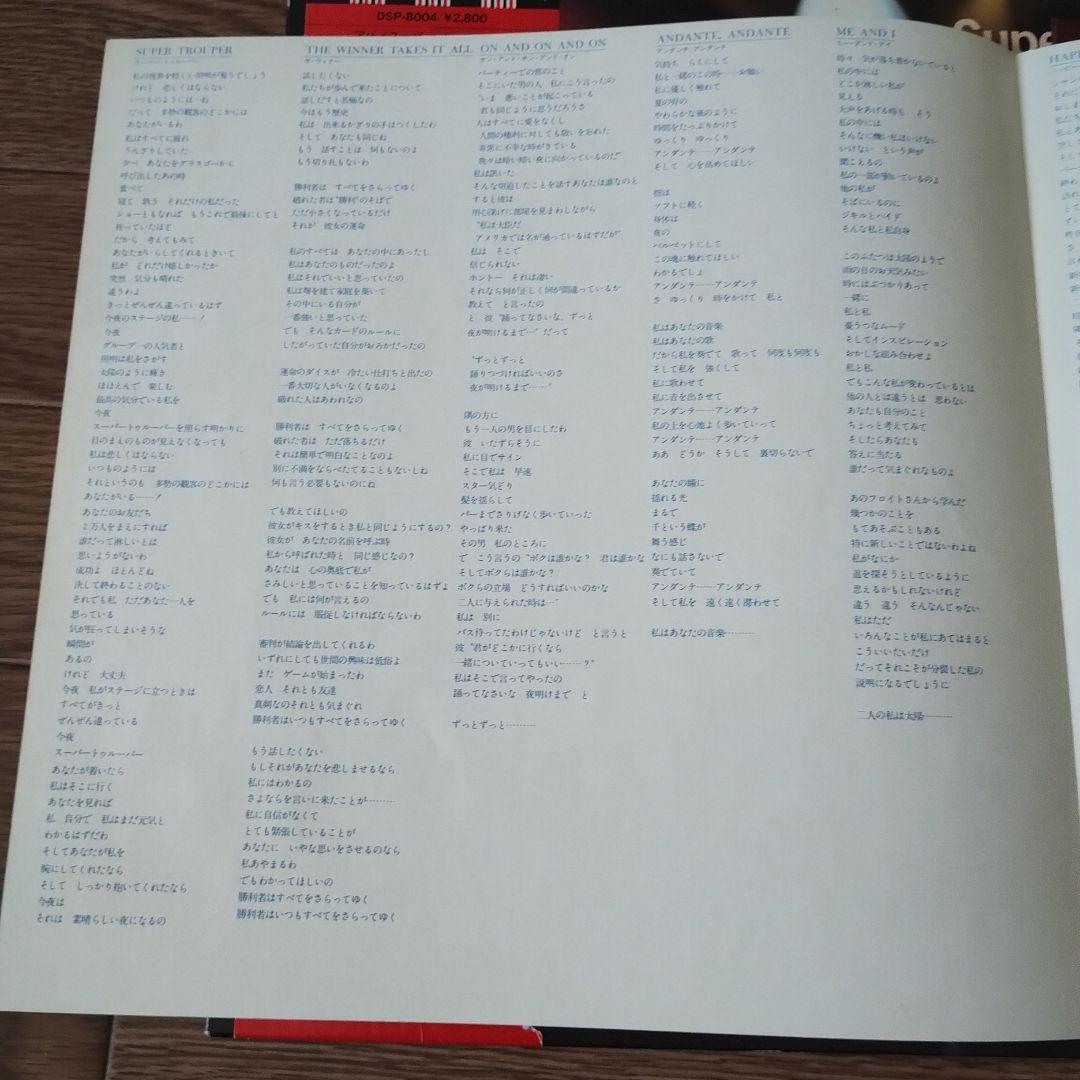 DSP-8004 ¥2,800
Supe
SUPER TROUPER
スーパー・トゥルーパー
私の視界を眩しい照明が奪うでしょう
けれど 悲しくはならない
いつものようにはーね
だって 多勢の観客のどこかには
あなたがいるわ
私はすべてに疲れ
うんざりしていた
夕べ あなたをグラスゴーから
呼び出したあの時
食べて
寝て 歌う それだけの私だった
ショーともなれば もうこれで最後にしてと
祈っていたほど
だから 考えてもみて
あなたがいらしてくれるときいて
私が どれだけ嬉しかったか
突然 気分も晴れた
違うわよ
きっとぜんぜん違っているはず
今夜のステージの私……!
今夜
グループ一の人気者と
照明は私をさがす
太陽のように輝き
ほほえんで 楽しむ
最高の気分でいる私を
今夜
スーパートゥルーパーを照らす明かりに
目のまえのものが見えなくなっても
私は悲しくはならない
いつものようには
それというのも 多勢の観客のどこかには
あなたがいる……!
あなたのお友だち
2万人をまえにすれば
誰だって淋しいとは
思いようがないわ
成功よ ほとんどね
決して終わることのない
それでも私 ただあなた一人を
思っている
気が狂ってしまいそうな
瞬間が
あるの
けれど 大丈夫
今夜 私がステージに立つときは
すべてがきっと
ぜんぜん違っている
今夜
スーパートゥルーパー
あなたが着いたら
私はそこに行く
あなたを見れば
私 自分で 私はまだ元気と
わかるはずだわ
そしてあなたが私を
腕にしてくれたなら
そして しっかり抱いてくれたなら
今夜は
それは 素晴らしい夜になるの
THE WINNER TAKES IT ALL
ザ・ウィナー
話したくない
私たちが歩んで来たことについて
話しだすと苦悩なの
今はもう歴史
私は 出来るかぎりの手はつくしたわ
そして あなたも同じね
もう 話すことは 何もないのよ
もう切り札もないわ
勝利者は すべてをさらってゆく
破れた者は“勝利”のそばで
ただ小さくなっているだけ
それが 彼女の運命
私のすべては あなたの中にあったし
私はあなたのものだったのよ
私はそれでいいと思っていたの
私は塀を建て家庭を築いて
その中にいる自分が
一番強いと思っていた
でも そんなカードのルールに
したがっていた自分がおろかだったの
運命のダイスが 冷たい仕打ちと出たの
一番大切な人がいなくなるのよ
破れた人はあわれなの
勝利者は すべてをさらってゆく
破れた者は ただ落ちるだけ
それは簡単で明白なことなのよ
別に不満をならべたてることもないしね
何も言う必要もないのにね
でも教えてほしいの
彼女がキスをするとき私と同じようにするの?
彼女が あなたの名前を呼ぶ時
私から呼ばれた時と 同じ感じなの?
あなたは 心の奥底で私が
さみしいと思っていることを知っているはずよ
でも 私には何が言えるの
ルールには 服従しなければならないわ
審判が結論を出してくれるわ
いずれにしても世間の興味は低俗よ
また ゲームが始まったわ
恋人 それとも友達
真剣なのそれとも気まぐれ
勝利者はいつもすべてをさらってゆく
もう話したくない
もしそれがあなたを悲しませるなら
私にはわかるの
さよならを言いに来たことが………
私に自信がなくて
とても緊張していることが
あなたに いやな思いをさせるのなら
私あやまるわ
でもわかってほしいの
勝利者はすべてをさらってゆく
勝利者はいつもすべてをさらってゆく
ON AND ON AND ON
オン・アンド・オン・アンド・オン
パーティーでの宵のこと
そこにいた男の人 私にこう言ったの
“いま 悪いことが起こっている
君も同じように思うだろうさ
人はすべてに愛をなくし
人間の権利に対しても敬いを忘れた
非常に不幸な時がきている
我々は暗い暗い夜に向かっているのだ
私は訊いた
そんな切迫したことを話すあなたは誰なのと
すると彼は
用心深げに部屋を見まわしながら
“私は大臣だ
アメリカでは名が通っているはずだが”
私は そこで
信じられない
ホントー それは凄い
それなら何が正しく何が間違っているか
教えて と言ったの
と 彼“踊ってなさいな、ずっと
夜が明けるまで…”だって
“ずっとずっと
踊りつづければいいのさ
夜が明けるまで……”
隅の方に
もう一人の男を目にしたわ
彼 いたずらそうに
私に目でサイン
そこで私は 早速
スター気どり
髪を揺らして
バーまでさりげなく歩いていった
やっぱり来た
その男 私のところに
で こう言うの“ボクは誰かな? 君は誰かな
そしてボクらは誰かな?
ボクらの立場 どうすればいいのかな
二人に与えられた時は…”
私は 別に
バス待ってたわけじゃないけど と言うと
彼“君がどこかに行くなら
一緒についていってもいい……?”
私はそこで言ってやったの
踊ってなさいな 夜明けまで と
ずっとずっと………
ANDANTE, ANDANTE
アンダンテ,アンダンテ
気持ち らくにして
私と一緒のこの時……お願い
私に優しく触れて
夏の宵の
やわらかな風のように
時間をたっぷりかけて
ゆっくり ゆっくり
アンダンテ……アンダンテ
そして 心を込めてほしい
指は
ソフトに軽く
身体は
夜の
ベルベットにして
この魂に触れてほしい
わかるでしょ
アンダンテ……アンダンテ
さ ゆっくり 時をかけて 私と
私はあなたの音楽
私はあなたの歌
だから私を奏でて 歌って 何度も何度も
そして私を 強くして
私に歌わせて
私に音を出させて
アンダンテ……アンダンテ
私の上を心地よく歩いていって
アンダンテ……アンダンテ
ああ どうか そうして 裏切らないで
あなたの瞳に
揺れる光
まるで
千という蝶が
舞う感じ
なにも話さないで
奏でていて
アンダンテ……アンダンテ
そして私を 遠く遠く漂わせて
私はあなたの音楽………
ME AND I
ミー・アンド・アイ
時々 気が落ち着かないでいると
私の中には
どこか淋しい私が
見える
大声をあげる時も そう
私の中には
そんなに醜い私はいけない
いけない という声が
聞こえるの
私の一部が動いているのよ
他の私が
そばにいるのに
ジキルとハイド
そんな私と私自身
このふたつは太陽のようで
雨の日のお天気みたい
時にはぶつかりあって
一緒に
私と私
憂うつなムード
そしてインスピレーション
おかしな組み合わせよ
私と私
でもこんな私が変わっているとは
他の人とは違うとは 思わない
あなたも自分のこと
ちょっと考えてみて
そしたらあなたも
答えに当たる
誰だって気まぐれなものよ
あのフロイトさんから学んだ
幾つかのことを
もてあそぶこともある
特に新しいことではないわよね
私がなにか
道を探そうとしているように
思えるかもしれないけれど
違う 違う そんなんじゃない
私はただ
いろんなことが私にあてはまると
こういいたいだけ
だってそれこそが分裂した私の
説明になるでしょうに
二人の私は太陽………
HAPP